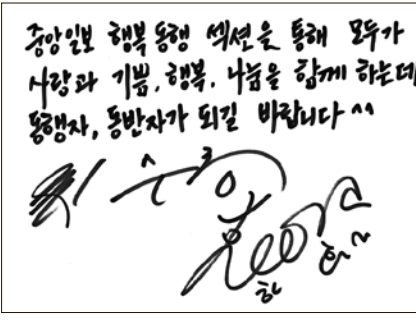 중앙일보 행복동행 섹션을 통해 모두가
사랑과 기쁨, 행복, 나눔을 함께 하는데
동행자, 동반자가 되길 바랍니다 ^^